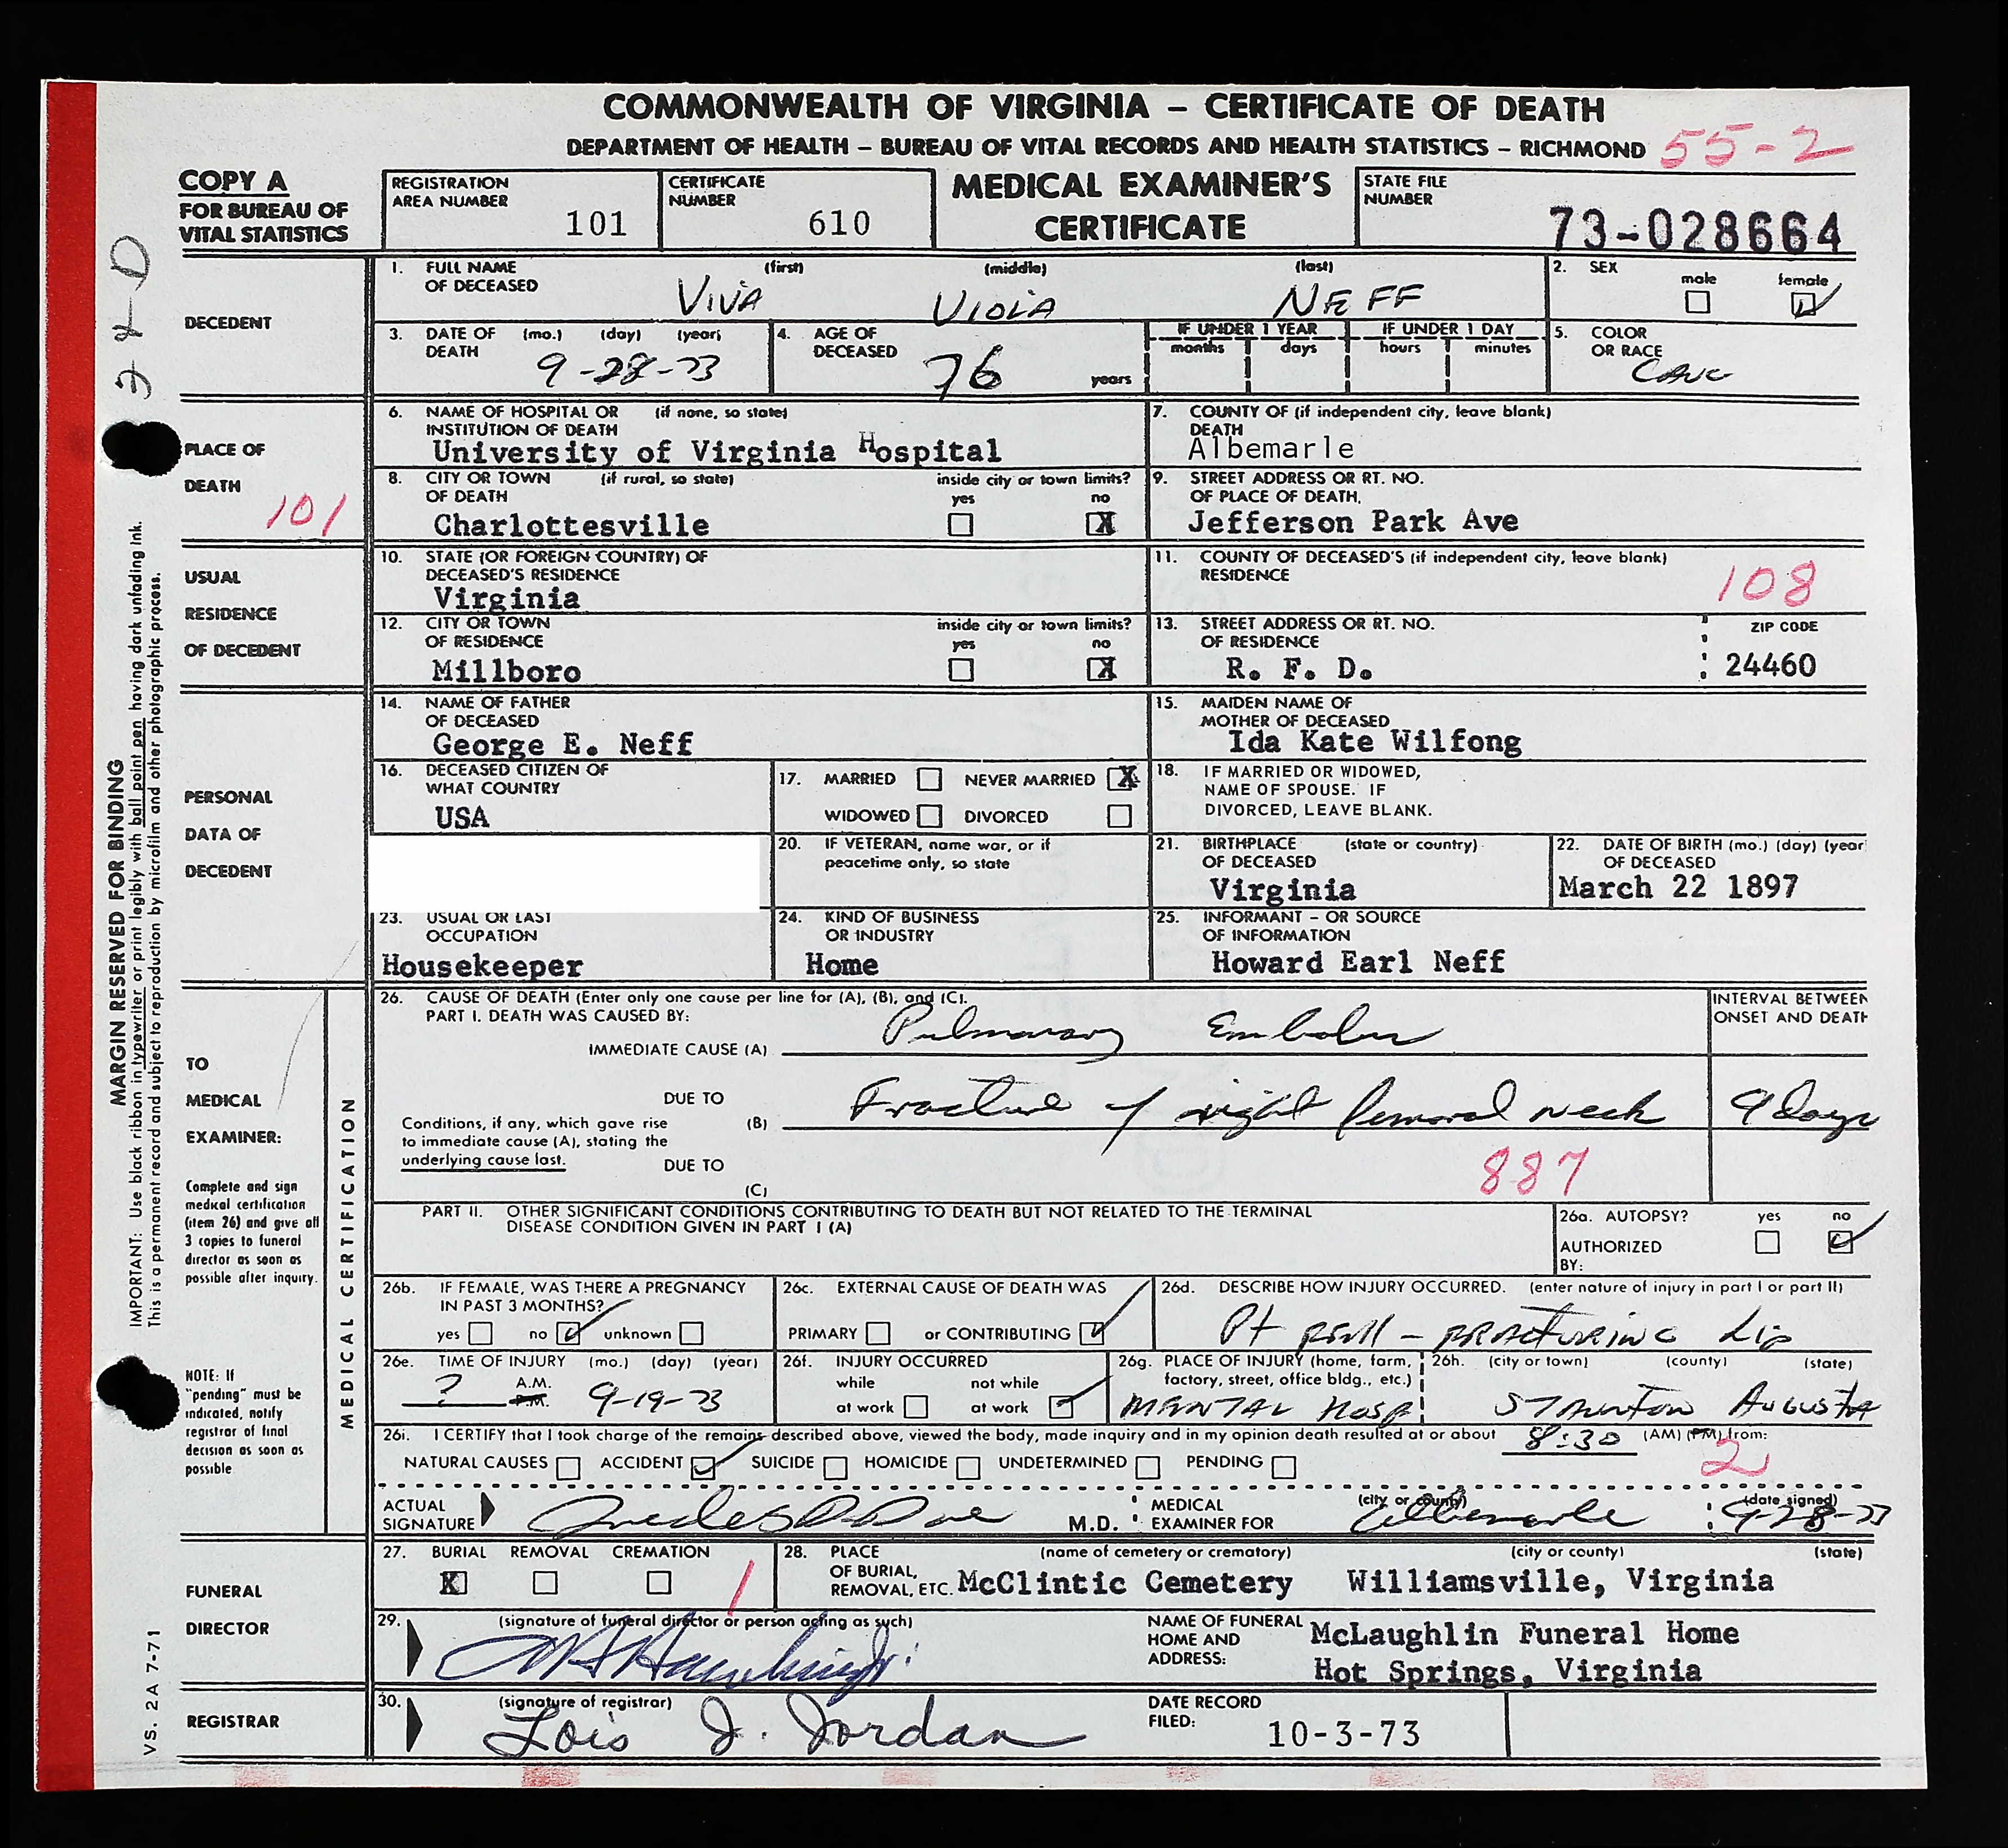 COMMONWEALTH OF VIRGINIA – CERTIFICATE OF DEATH
DEPARTMENT OF HEALTH – BUREAU OF VITAL RECORDS AND HEALTH STATISTICS – RICHMOND 55-2
COPY A
FOR BUREAU OF
VITAL STATISTICS
REGISTRATION
AREA NUMBER 101
CERTIFICATE
NUMBER 610
MEDICAL EXAMINER'S
CERTIFICATE
STATE FILE
NUMBER
73-028664
DECEDENT
1. FULL NAME (first) (middle) (last)
OF DECEASED
VIVA VIOLA NEFF
2. SEX
male female
3. DATE OF (mo.) (day) (year)
DEATH
9-28-73
4. AGE OF
DECEASED
76 years
IF UNDER 1 YEAR IF UNDER 1 DAY
months days hours minutes
5. COLOR
OR RACE
CAUC
PLACE OF
DEATH
101
6. NAME OF HOSPITAL OR (if none, so state)
INSTITUTION OF DEATH
University of Virginia Hospital
7. COUNTY OF (if independent city, leave blank)
DEATH
Albemarle
8. CITY OR TOWN (if rural, so state) inside city or town limits?
OF DEATH yes no
Charlottesville X
9. STREET ADDRESS OR RT. NO.
OF PLACE OF DEATH.
Jefferson Park Ave
USUAL
RESIDENCE
OF DECEDENT
10. STATE (OR FOREIGN COUNTRY) OF
DECEASED'S RESIDENCE
Virginia
11. COUNTY OF DECEASED'S (if independent city, leave blank)
RESIDENCE
108
12. CITY OR TOWN inside city or town limits?
OF RESIDENCE yes no
Millboro X
13. STREET ADDRESS OR RT. NO. ZIP CODE
OF RESIDENCE
R. F. D. 24460
PERSONAL
DATA OF
DECEDENT
14. NAME OF FATHER
OF DECEASED
George E. Neff
15. MAIDEN NAME OF
MOTHER OF DECEASED
Ida Kate Wilfong
16. DECEASED CITIZEN OF
WHAT COUNTRY
USA
17. MARRIED NEVER MARRIED X
WIDOWED DIVORCED
18. IF MARRIED OR WIDOWED,
NAME OF SPOUSE. IF
DIVORCED, LEAVE BLANK.
20. IF VETERAN, name war, or if
peacetime only, so state
21. BIRTHPLACE (state or country)
OF DECEASED
Virginia
22. DATE OF BIRTH (mo.) (day) (year
OF DECEASED
March 22 1897
23. USUAL OR LAST
OCCUPATION
Housekeeper
24. KIND OF BUSINESS
OR INDUSTRY
Home
25. INFORMANT – OR SOURCE
OF INFORMATION
Howard Earl Neff
TO
MEDICAL
EXAMINER:
Complete and sign
medical certification
(item 26) and give all
3 copies to funeral
director as soon as
possible after inquiry.
NOTE: If
"pending" must be
indicated, notify
registrar of final
decision as soon as
possible
MEDICAL CERTIFICATION
26. CAUSE OF DEATH (Enter only one cause per line for (A), (B), and (C).
PART I. DEATH WAS CAUSED BY:
INTERVAL BETWEEN
ONSET AND DEATH
IMMEDIATE CAUSE (A) Pulmonary Embolus
DUE TO
Conditions, if any, which gave rise
to immediate cause (A), stating the
underlying cause last.
(B) Fracture of right femoral neck 9 days
DUE TO
887
(C)
PART II. OTHER SIGNIFICANT CONDITIONS CONTRIBUTING TO DEATH BUT NOT RELATED TO THE TERMINAL
DISEASE CONDITION GIVEN IN PART I (A)
26a. AUTOPSY? yes no
AUTHORIZED
BY:
26b. IF FEMALE, WAS THERE A PREGNANCY
IN PAST 3 MONTHS?
yes no unknown
26c. EXTERNAL CAUSE OF DEATH WAS
PRIMARY or CONTRIBUTING
26d. DESCRIBE HOW INJURY OCCURRED. (enter nature of injury in part I or part II)
Pt FELL – FRACTURING Hip
26e. TIME OF INJURY (mo.) (day) (year)
? A.M. P.M. 9-19-73
26f. INJURY OCCURRED
while not while
at work at work
26g. PLACE OF INJURY (home, farm,
factory, street, office bldg., etc.)
MENTAL Hosp
26h. (city or town) (county) (state)
STAUNTON AUGUSTA
26i. I CERTIFY that I took charge of the remains described above, viewed the body, made inquiry and in my opinion death resulted at or about 8:30 (AM) (PM) from:
NATURAL CAUSES ACCIDENT SUICIDE HOMICIDE UNDETERMINED PENDING 2
ACTUAL
SIGNATURE
M.D.
MEDICAL
EXAMINER FOR
(city or county)
Albemarle
(date signed)
9-28-73
FUNERAL
DIRECTOR
27. BURIAL REMOVAL CREMATION
X 1
28. PLACE (name of cemetery or crematory) (city or county) (state)
OF BURIAL,
REMOVAL, ETC. McClintic Cemetery Williamsville, Virginia
29. (signature of funeral director or person acting as such)
NAME OF FUNERAL
HOME AND
ADDRESS:
McLaughlin Funeral Home
Hot Springs, Virginia
REGISTRAR
30. (signature of registrar)
Lois J. Jordan
DATE RECORD
FILED:
10-3-73
MARGIN RESERVED FOR BINDING
IMPORTANT: Use black ribbon in typewriter or print legibly with ball point pen having dark unfading ink.
This is a permanent record and subject to reproduction by microfilm and other photographic process.
VS. 2A 7-71